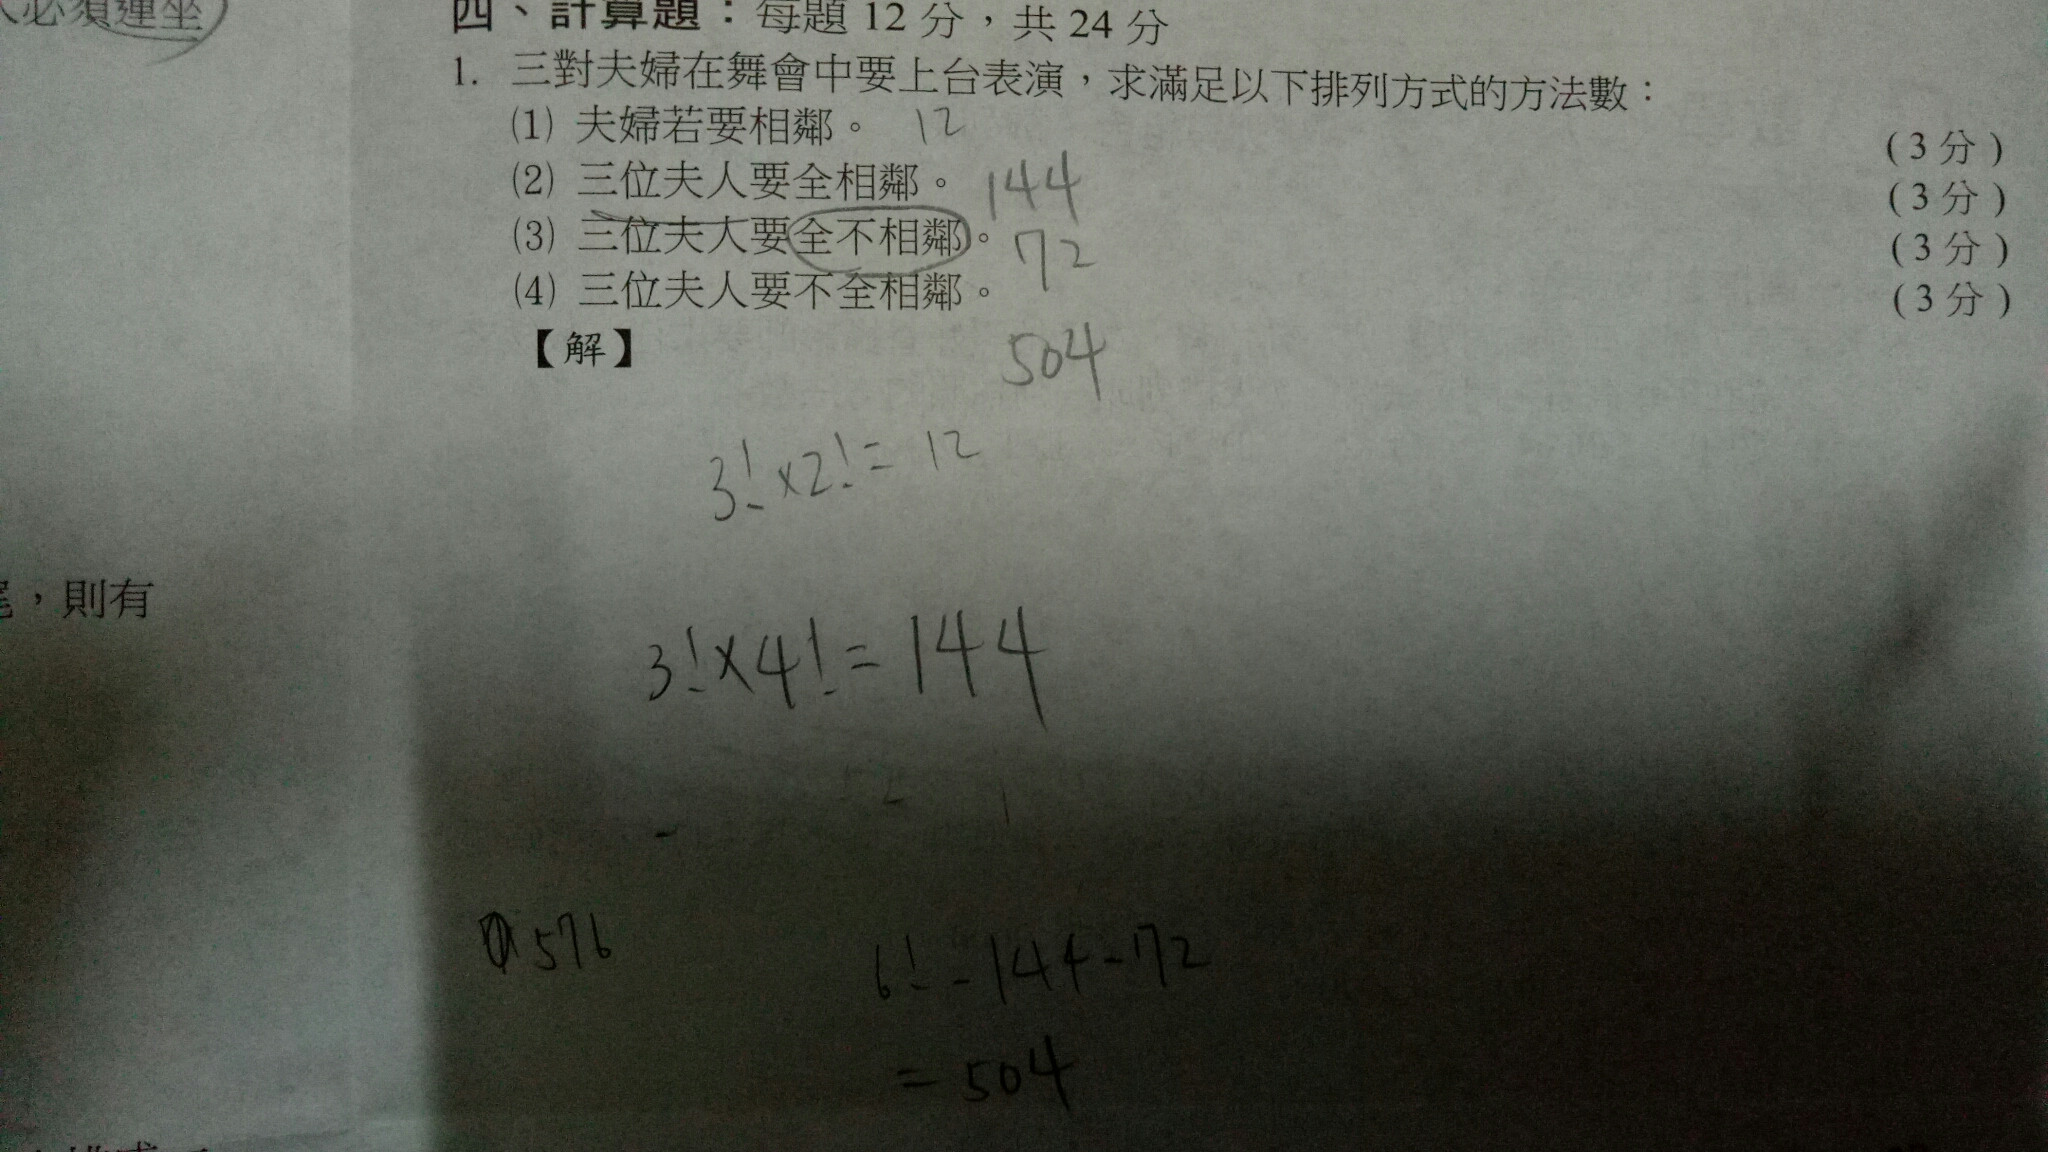 必須連坐
四、計算題：每題 12 分，共 24 分
1. 三對夫婦在舞會中要上台表演，求滿足以下排列方式的方法數：
(1) 夫婦若要相鄰。 12 (3 分)
(2) 三位夫人要全相鄰。 144 (3 分)
(3) 三位夫人要全不相鄰。 72 (3 分)
(4) 三位夫人要不全相鄰。 (3 分)
【解】 504
3!×2!=12
，則有
3!×4!=144
576
6!-144-72
=504